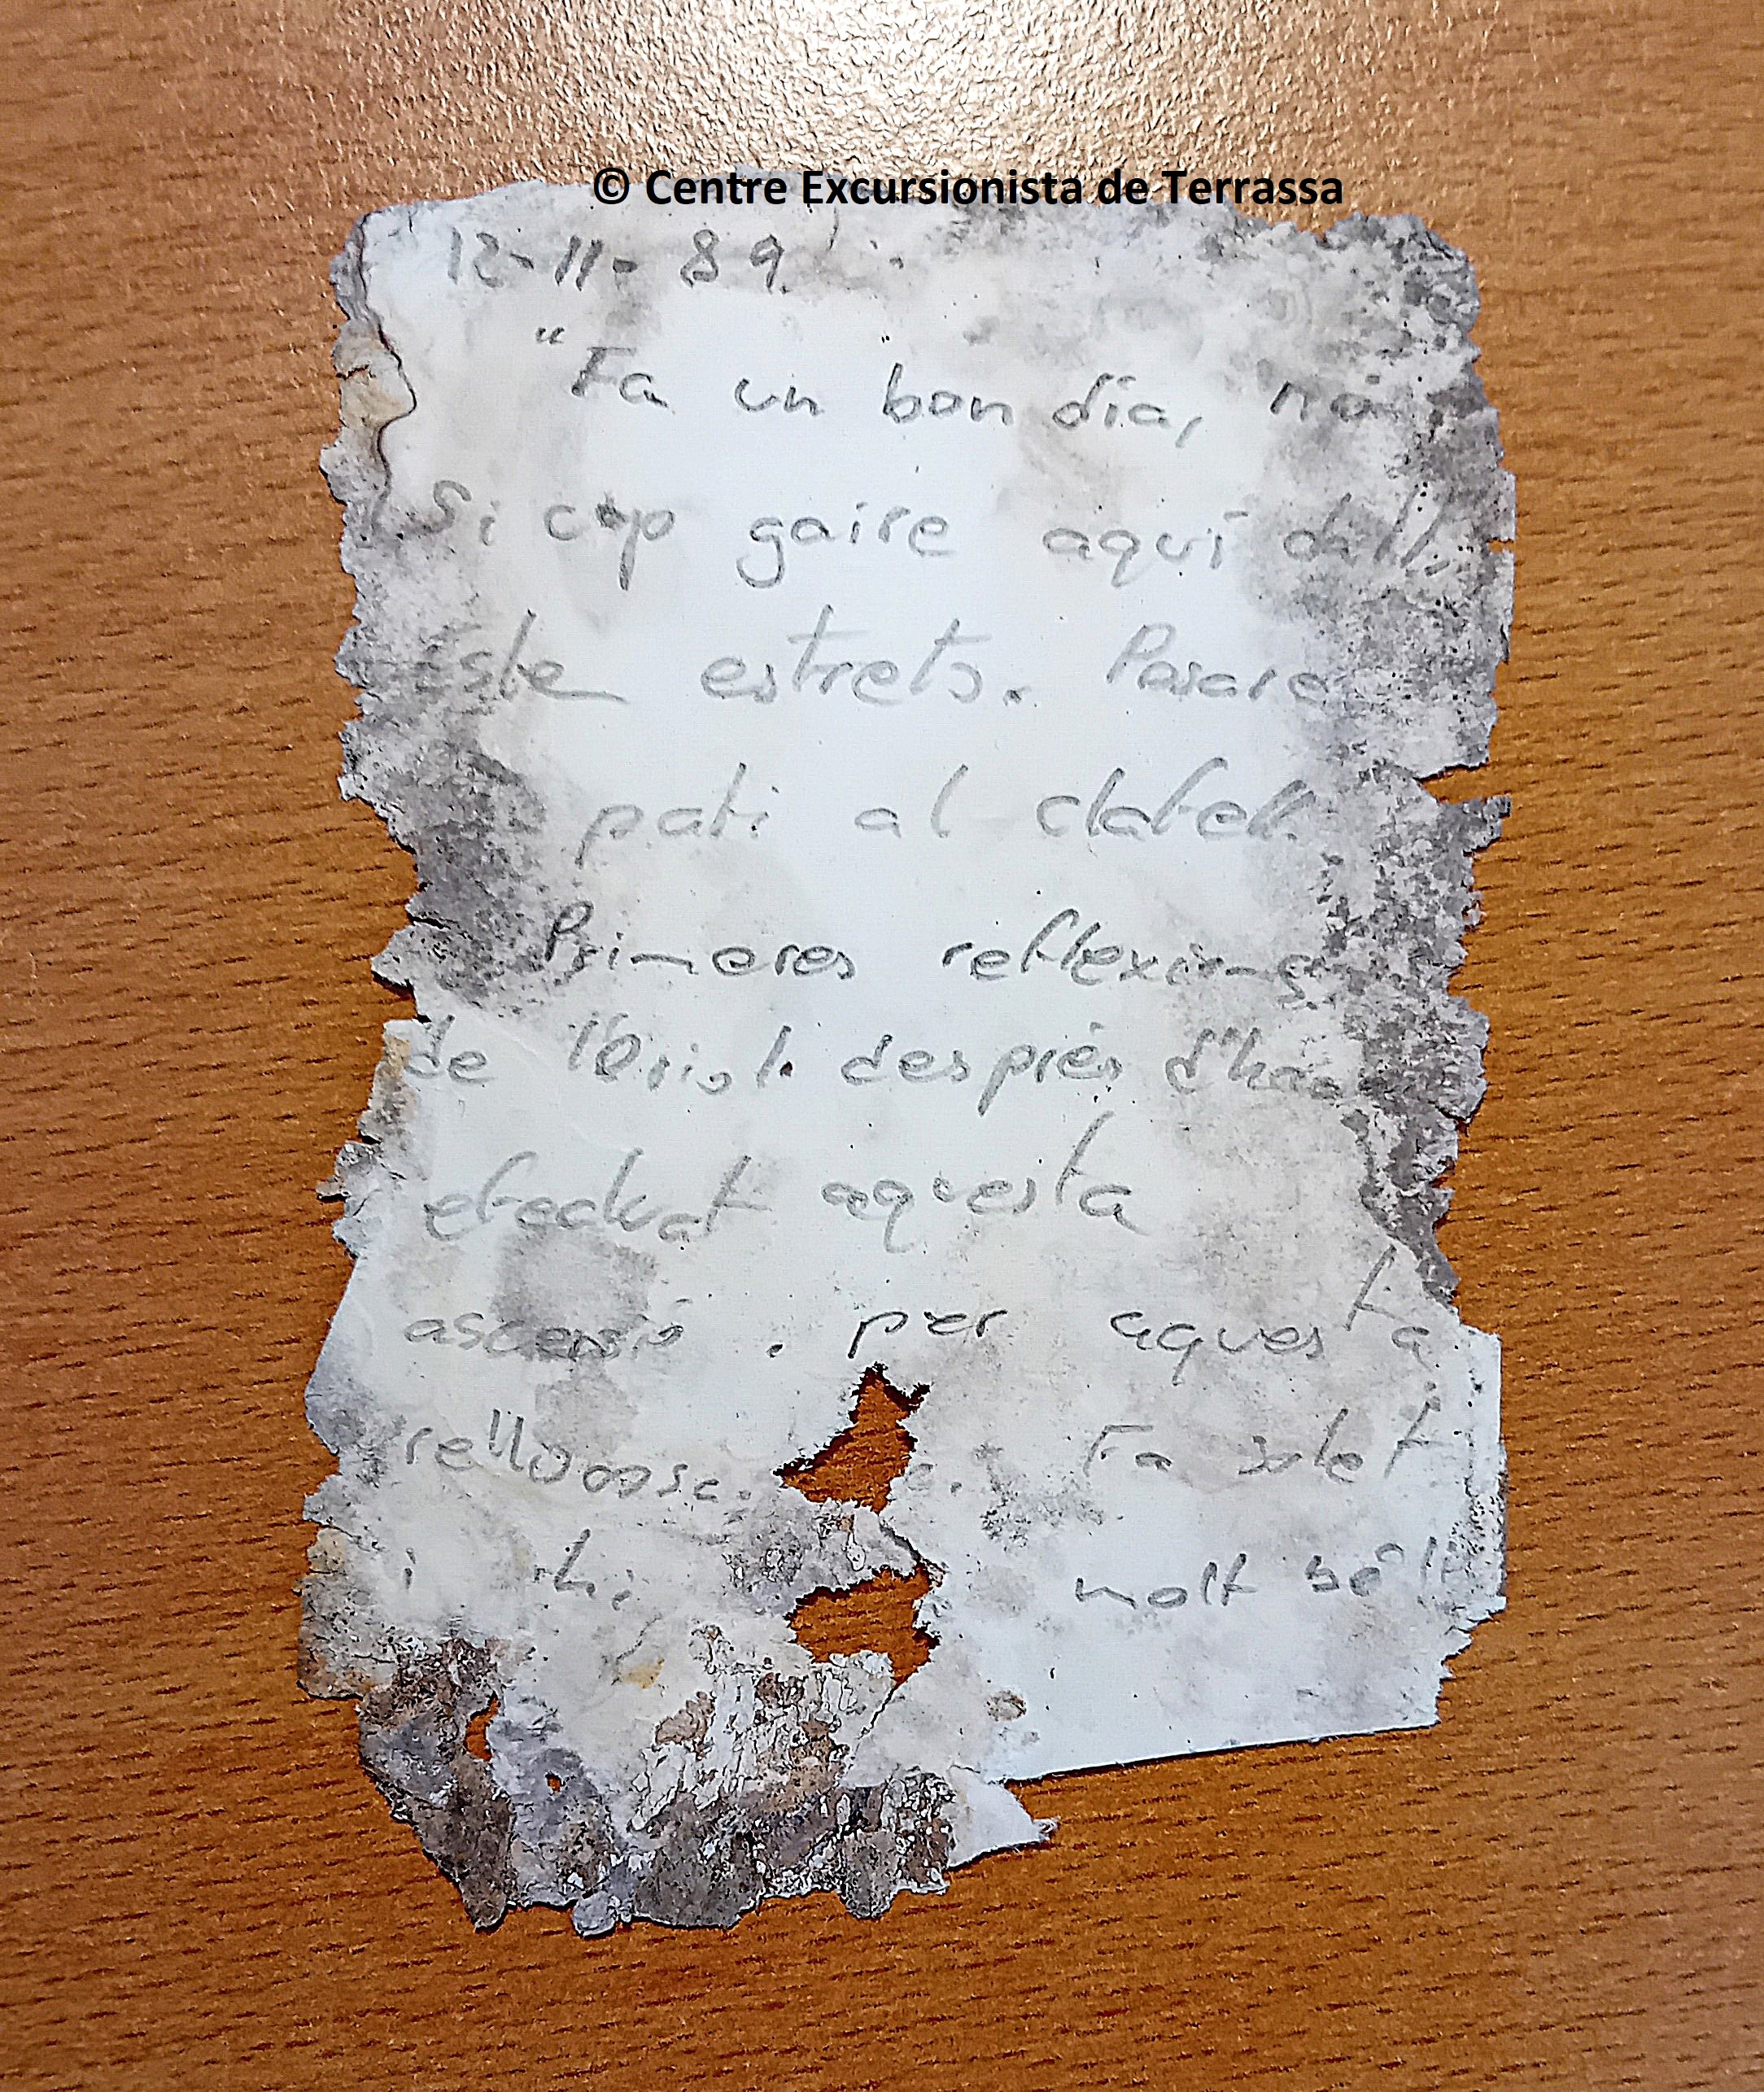 © Centre Excursionista de Terrassa
12-11-89
"Fa un bon dia, no
Si cap gaire aquí dalt,
estrets. Pasare
pati al clatell.
Primeres reflexions
de l'Oriol després d'have
efectuat aquesta
ascensió. per aquesta
Fa solet
i hi molt bé